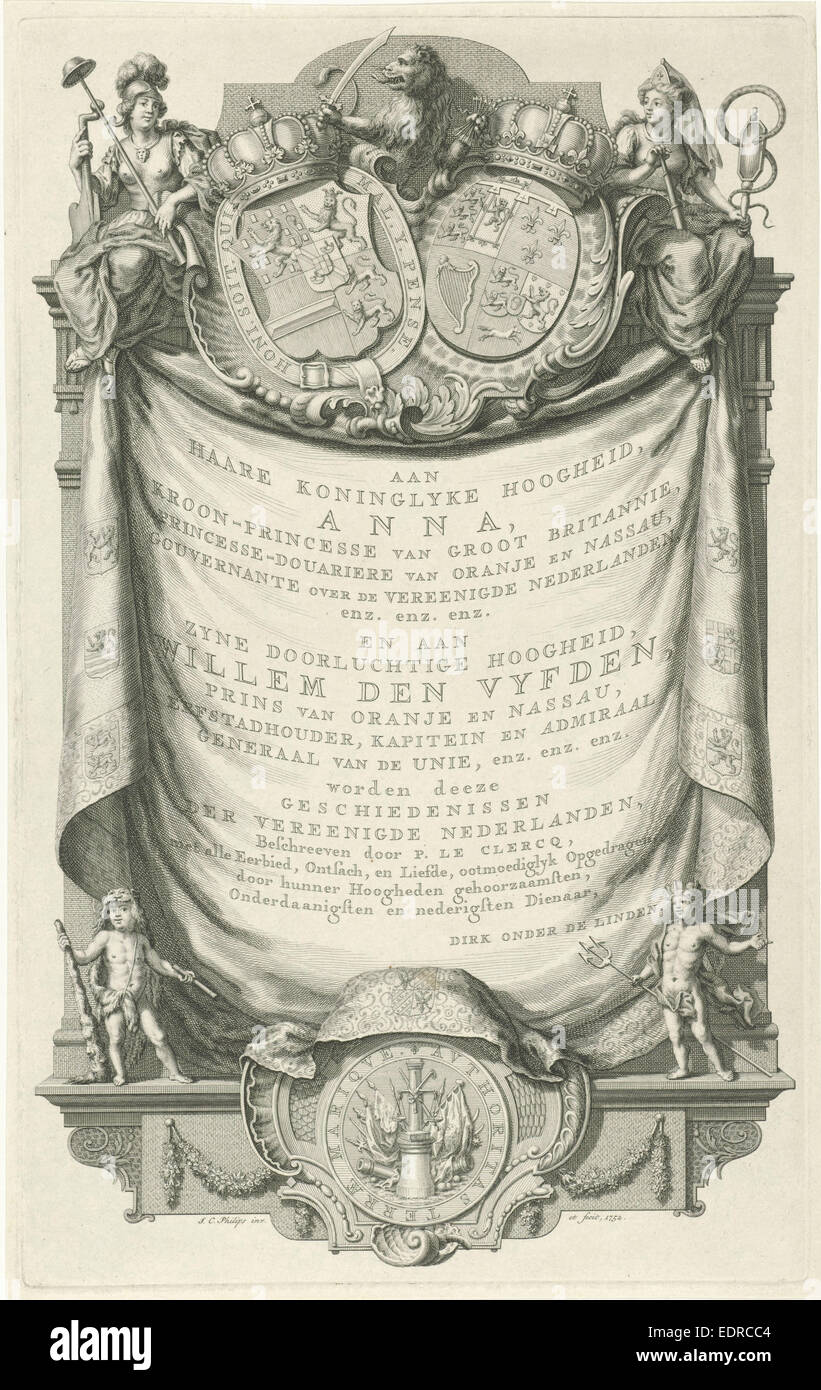 HONI SOIT QUI MAL Y PENSE.
AAN
HAARE KONINGLYKE HOOGHEID,
ANNA,
KROON-PRINCESSE VAN GROOT BRITANNIE,
PRINCESSE-DOUARIERE VAN ORANJE EN NASSAU,
GOUVERNANTE OVER DE VEREENIGDE NEDERLANDEN,
enz. enz. enz.
EN AAN
ZYNE DOORLUCHTIGE HOOGHEID,
WILLEM DEN VYFDEN,
PRINS VAN ORANJE EN NASSAU,
ERFSTADHOUDER, KAPITEIN EN ADMIRAAL
GENERAAL VAN DE UNIE, enz. enz. enz.
worden deeze
GESCHIEDENISSEN
DER VEREENIGDE NEDERLANDEN,
Beſchreeven door P. LE CLERCQ,
met alle Eerbied, Ontſach, en Liefde, ootmoediglyk Opgedragen
door hunner Hoogheden gehoorzaamſten,
Onderdaanigſten en nederigſten Dienaar,
DIRK ONDER DE LINDEN
AVTHORITAS TERRÆ MARIQVE
J. C. Philips inv. et fecit, 1752.
alamy
a
alamy stock photo
EDRCC4
www.alamy.com